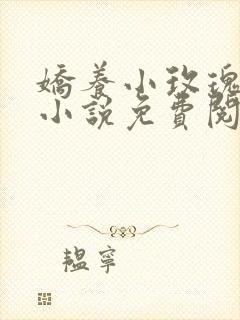 嬌養小玫瑰
小說免費閱
韞寧